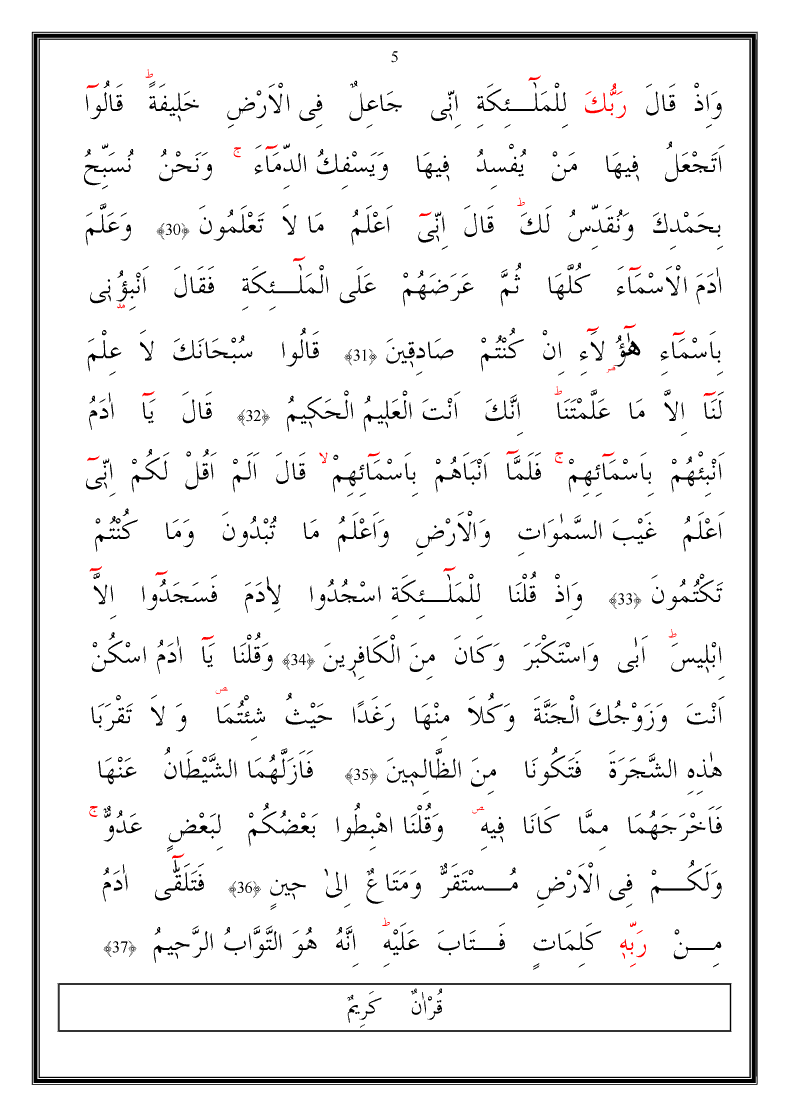 5
وَاِذْ قَالَ رَبُّكَ لِلْمَلٰٓـئِكَةِ اِنّ۪ى جَاعِلٌ فِى الْاَرْضِ خَل۪يفَةًۜ قَالُٓوا
اَتَجْعَلُ ف۪يهَا مَنْ يُفْسِدُ ف۪يهَا وَيَسْفِكُ الدِّمَٓاءَ ۚ وَنَحْنُ نُسَبِّحُ
بِحَمْدِكَ وَنُقَدِّسُ لَكَۜ قَالَ اِنّ۪ىٓ اَعْلَمُ مَا لَا تَعْلَمُونَ ﴿30﴾ وَعَلَّمَ
اٰدَمَ الْاَسْمَٓاءَ كُلَّهَا ثُمَّ عَرَضَهُمْ عَلَى الْمَلٰٓـئِكَةِ فَقَالَ اَنْبِؤُ۫ن۪ى
بِاَسْمَٓاءِ هٰٓؤُ۬لَٓاءِ اِنْ كُنْتُمْ صَادِق۪ينَ ﴿31﴾ قَالُوا سُبْحَانَكَ لَا عِلْمَ
لَنَٓا اِلَّا مَا عَلَّمْتَنَاۜ اِنَّكَ اَنْتَ الْعَل۪يمُ الْحَك۪يمُ ﴿32﴾ قَالَ يَٓا اٰدَمُ
اَنْبِئْهُمْ بِاَسْمَٓائِهِمْۚ فَلَمَّٓا اَنْبَاَهُمْ بِاَسْمَٓائِهِمْۙ قَالَ اَلَمْ اَقُلْ لَكُمْ اِنّ۪ىٓ
اَعْلَمُ غَيْبَ السَّمٰوَاتِ وَالْاَرْضِ وَاَعْلَمُ مَا تُبْدُونَ وَمَا كُنْتُمْ
تَكْتُمُونَ ﴿33﴾ وَاِذْ قُلْنَا لِلْمَلٰٓـئِكَةِ اسْجُدُوا لِاٰدَمَ فَسَجَدُٓوا اِلَّٓا
اِبْل۪يسَۜ اَبٰى وَاسْتَكْبَرَ وَكَانَ مِنَ الْكَافِر۪ينَ ﴿34﴾ وَقُلْنَا يَٓا اٰدَمُ اسْكُنْ
اَنْتَ وَزَوْجُكَ الْجَنَّةَ وَكُلَا مِنْهَا رَغَدًا حَيْثُ شِئْتُمَاۖ وَ لَا تَقْرَبَا
هٰذِهِ الشَّجَرَةَ فَتَكُونَا مِنَ الظَّالِم۪ينَ ﴿35﴾ فَاَزَلَّهُمَا الشَّيْطَانُ عَنْهَا
فَاَخْرَجَهُمَا مِمَّا كَانَا ف۪يهِۖ وَقُلْنَا اهْبِطُوا بَعْضُكُمْ لِبَعْضٍ عَدُوٌّۚ
وَلَكُـمْ فِى الْاَرْضِ مُـسْتَقَرٌّ وَمَتَاعٌ اِلٰى ح۪ينٍ ﴿36﴾ فَتَلَقّٰٓى اٰدَمُ
مِـنْ رَبِّه۪ كَلِمَاتٍ فَـتَابَ عَلَيْهِۜ اِنَّهُ هُوَ التَّوَّابُ الرَّح۪يمُ ﴿37﴾
قُرْاٰنٌ كَرِيمٌ